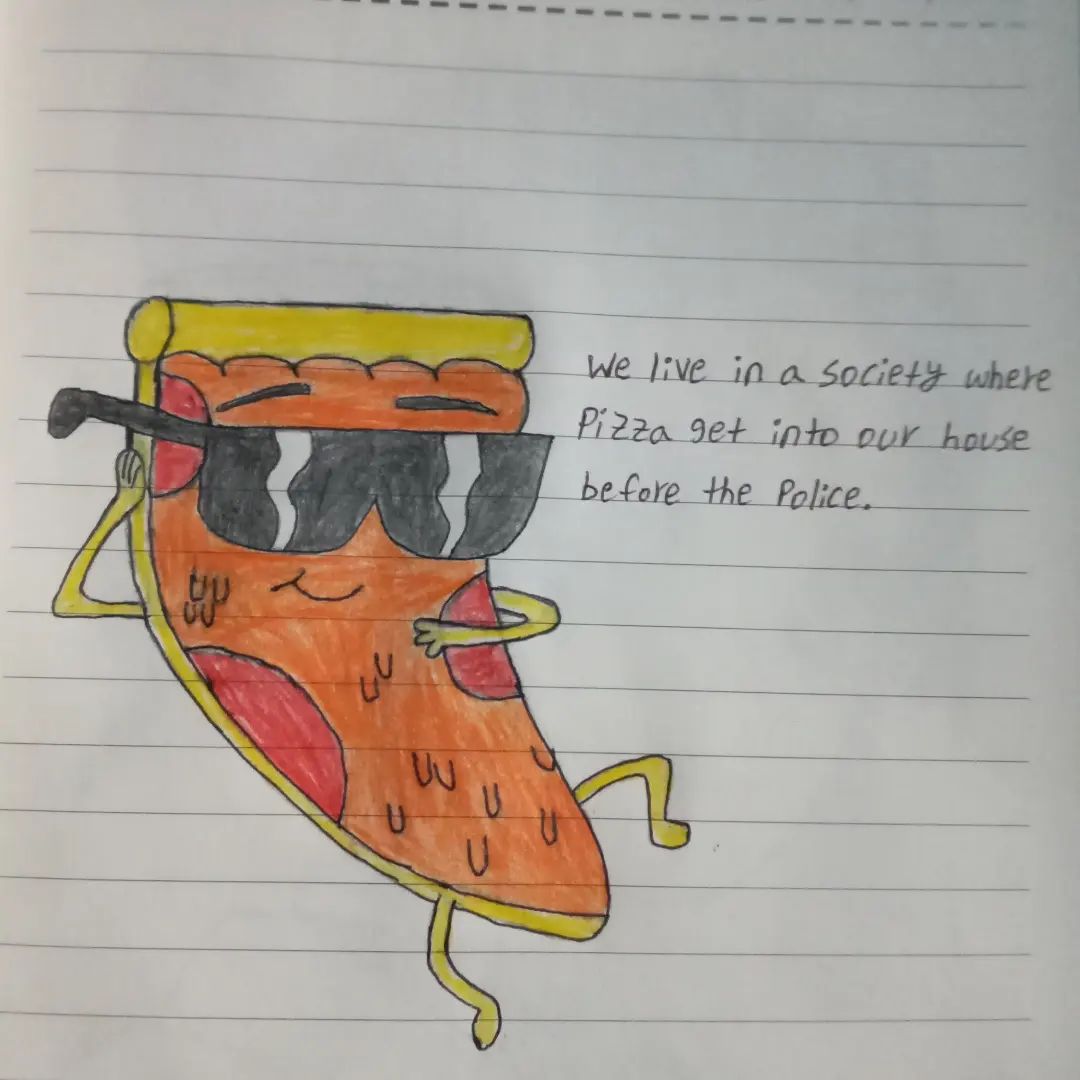 We live in a society where
Pizza get into our house
before the Police.